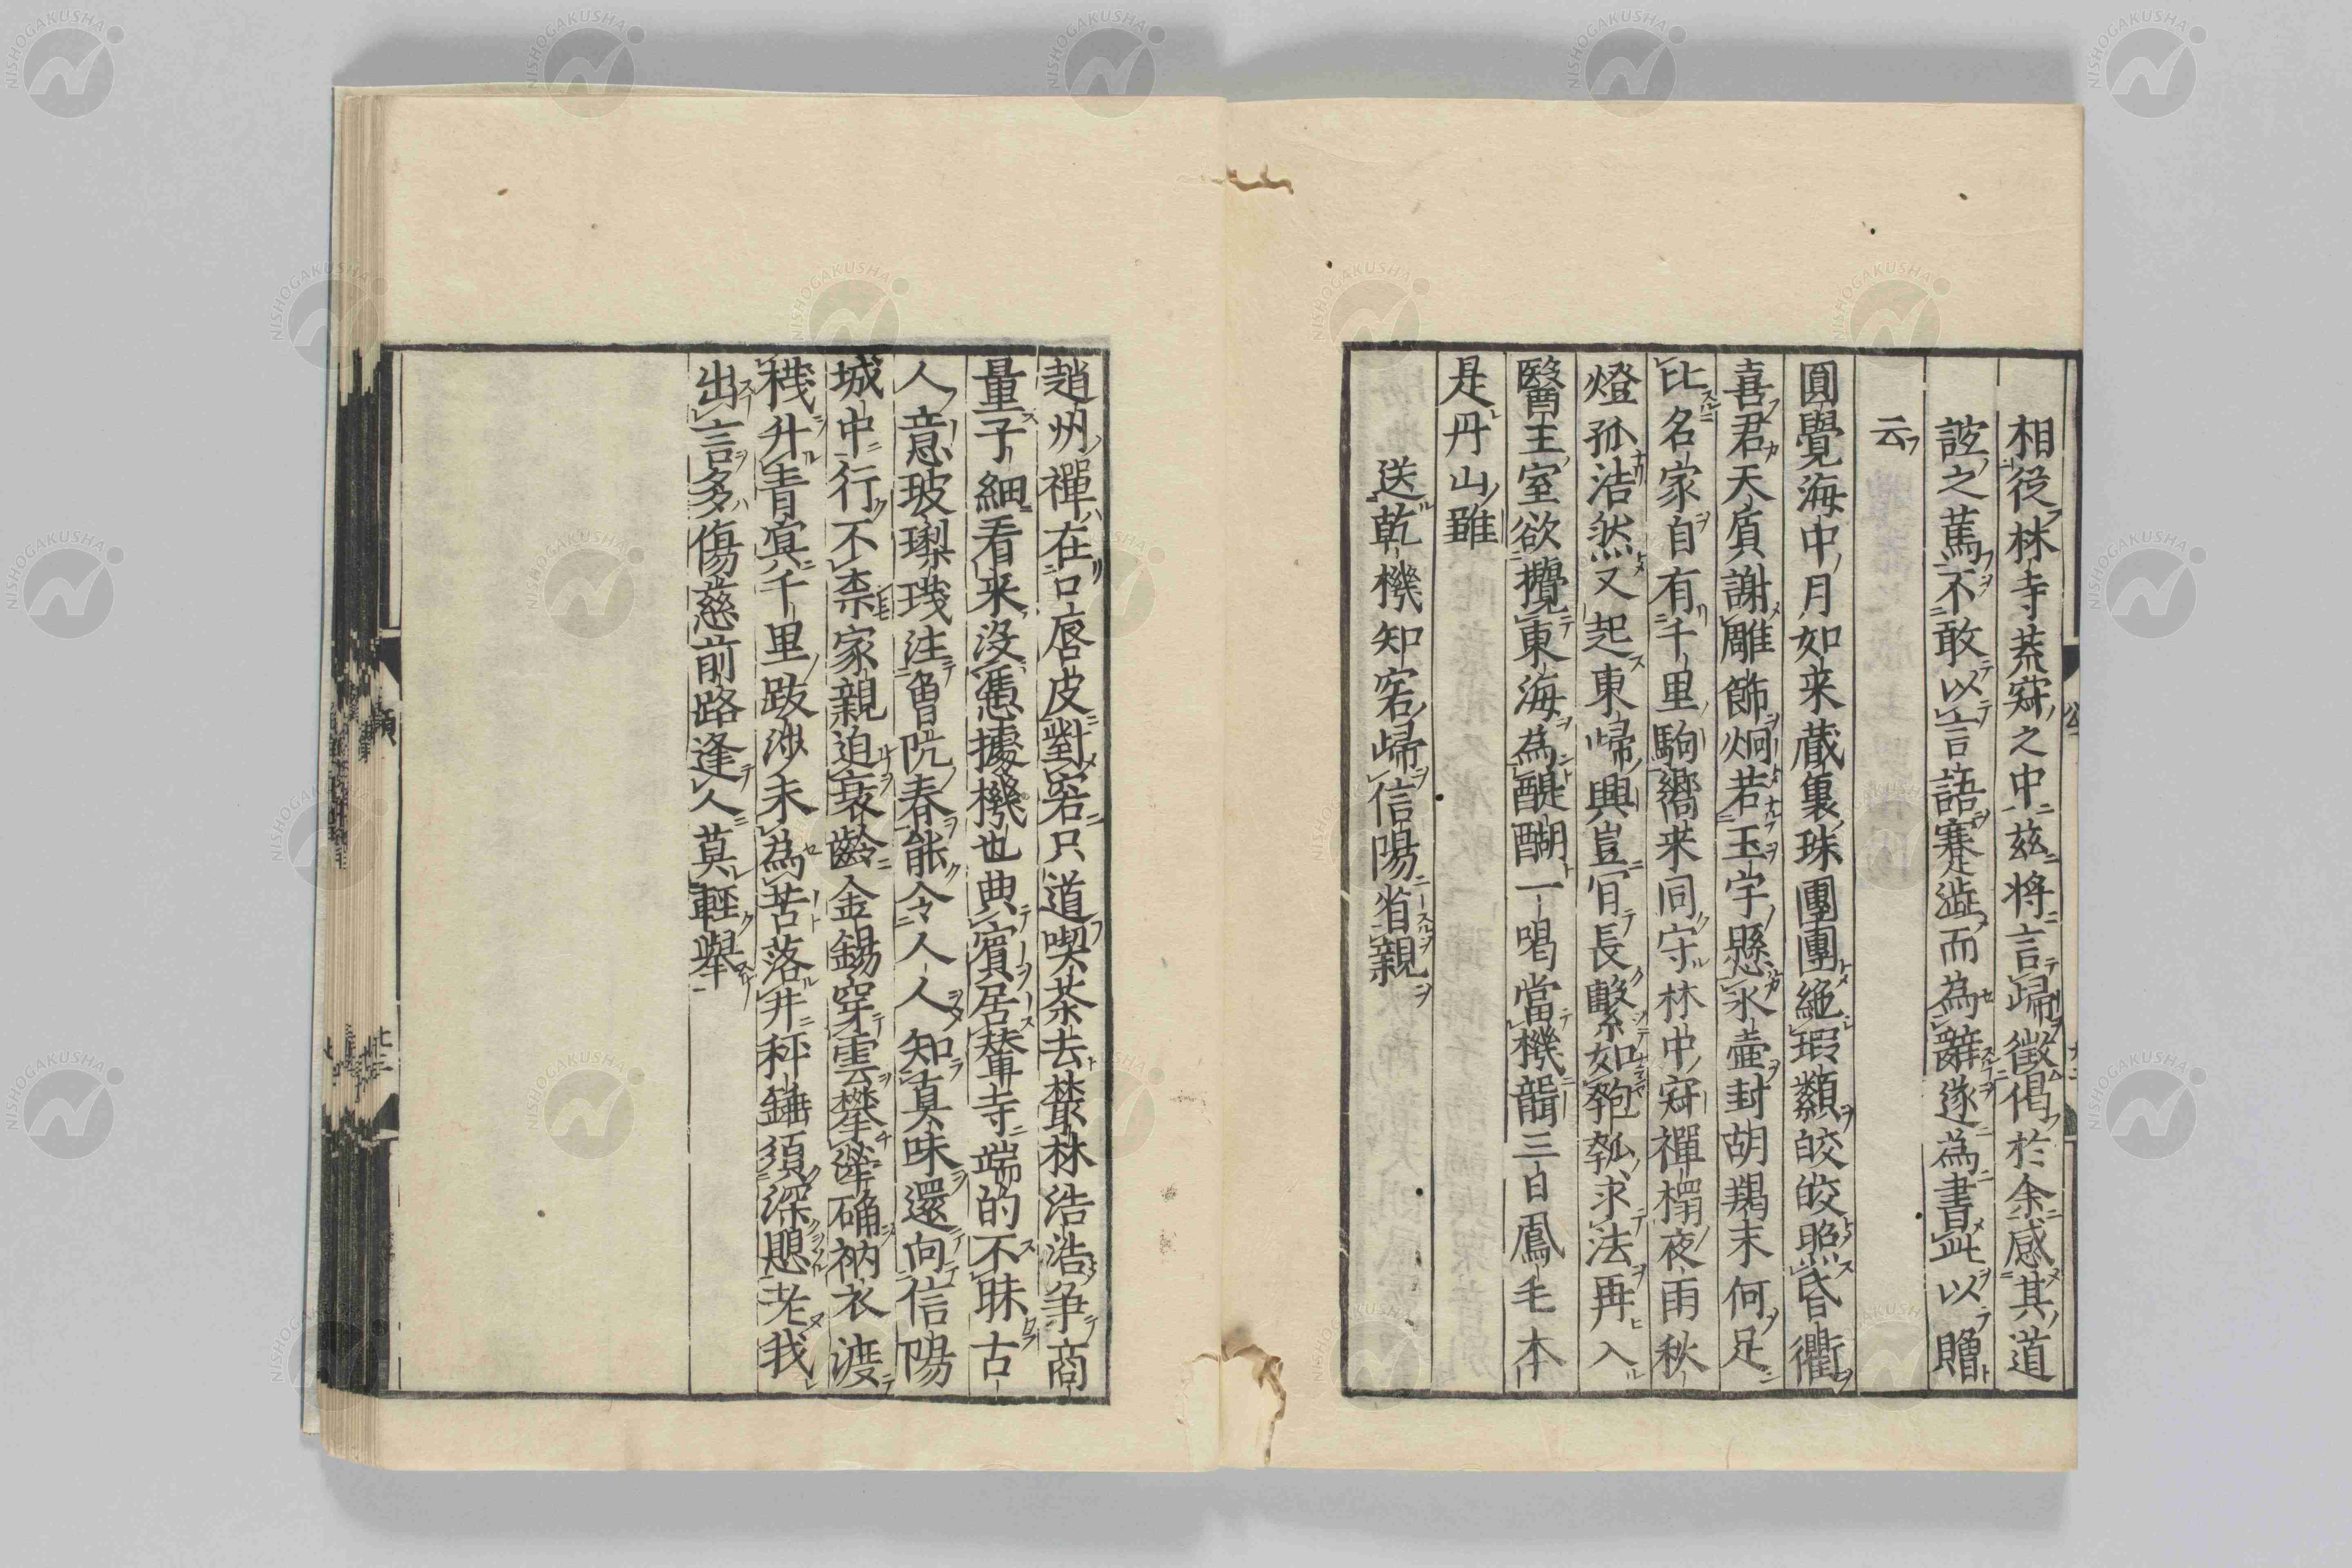 相從林寺荒寂之中玆將言歸徵偈於余感其道
誼之篤不敢以言語蹇澁而為辭遂為書此以贈
云
圓覺海中月如来蔵裏珠團團絶瑕纇皎皎照昏衢
喜君天質謝雕飾炯若玉宇懸氷壷封胡羯末何足
比名家自有千里駒嚮来同守林中寂禪榻夜雨秋
燈孤浩然又起東歸興豈肯長繫如匏瓠求法再入
醫王室欲攪東海為醍醐一喝當機聾三日鳳毛本
是丹山雛
送乾機知客歸信陽省親
趙州禪在口唇皮對客只道喫茶去叢林浩浩争商
量子細看来没憑據機也典賓居輦寺端的不昧古
人意玻瓈琖注曽阬春能令人人知真味還向信陽
城中行不柰家親迫衰齡金錫穿雲攀犖确衲衣渡
棧升青冥千里跋涉未為苦落井秤錘須深愳老我
出言多傷慈前路逢人莫輕舉